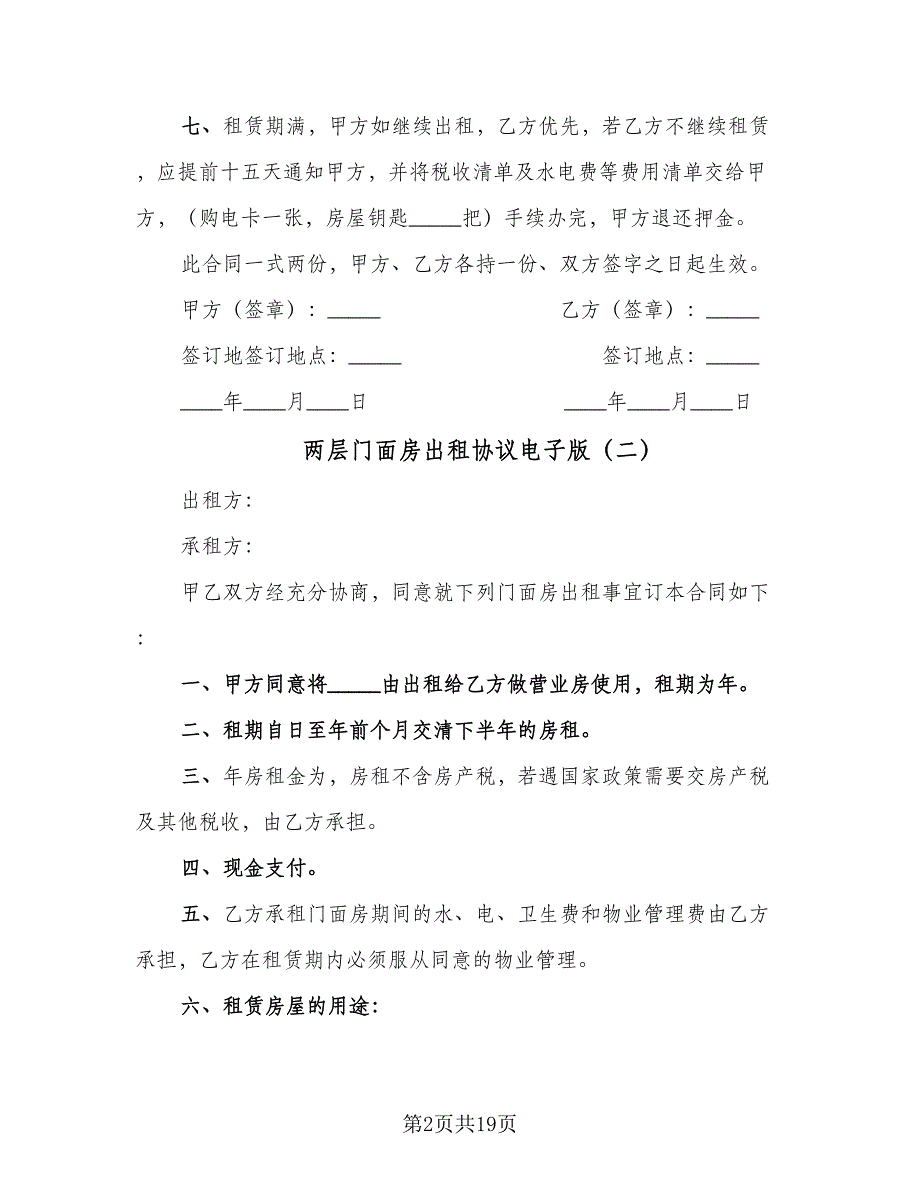 七、租赁期满，甲方如继续出租，乙方优先，若乙方不继续租赁
，应提前十五天通知甲方，并将税收清单及水电费等费用清单交给甲
方，（购电卡一张，房屋钥匙_____把）手续办完，甲方退还押金。
此合同一式两份，甲方、乙方各持一份、双方签字之日起生效。
甲方（签章）：_____ 乙方（签章）：_____
签订地签订地点：_____ 签订地点：_____
____年____月____日 ____年____月____日
两层门面房出租协议电子版（二）
出租方：
承租方：
甲乙双方经充分协商，同意就下列门面房出租事宜订本合同如下
：
一、甲方同意将_____由出租给乙方做营业房使用，租期为年。
二、租期自日至年前个月交清下半年的房租。
三、年房租金为，房租不含房产税，若遇国家政策需要交房产税
及其他税收，由乙方承担。
四、现金支付。
五、乙方承租门面房期间的水、电、卫生费和物业管理费由乙方
承担，乙方在租赁期内必须服从同意的物业管理。
六、租赁房屋的用途：
第2页共19页